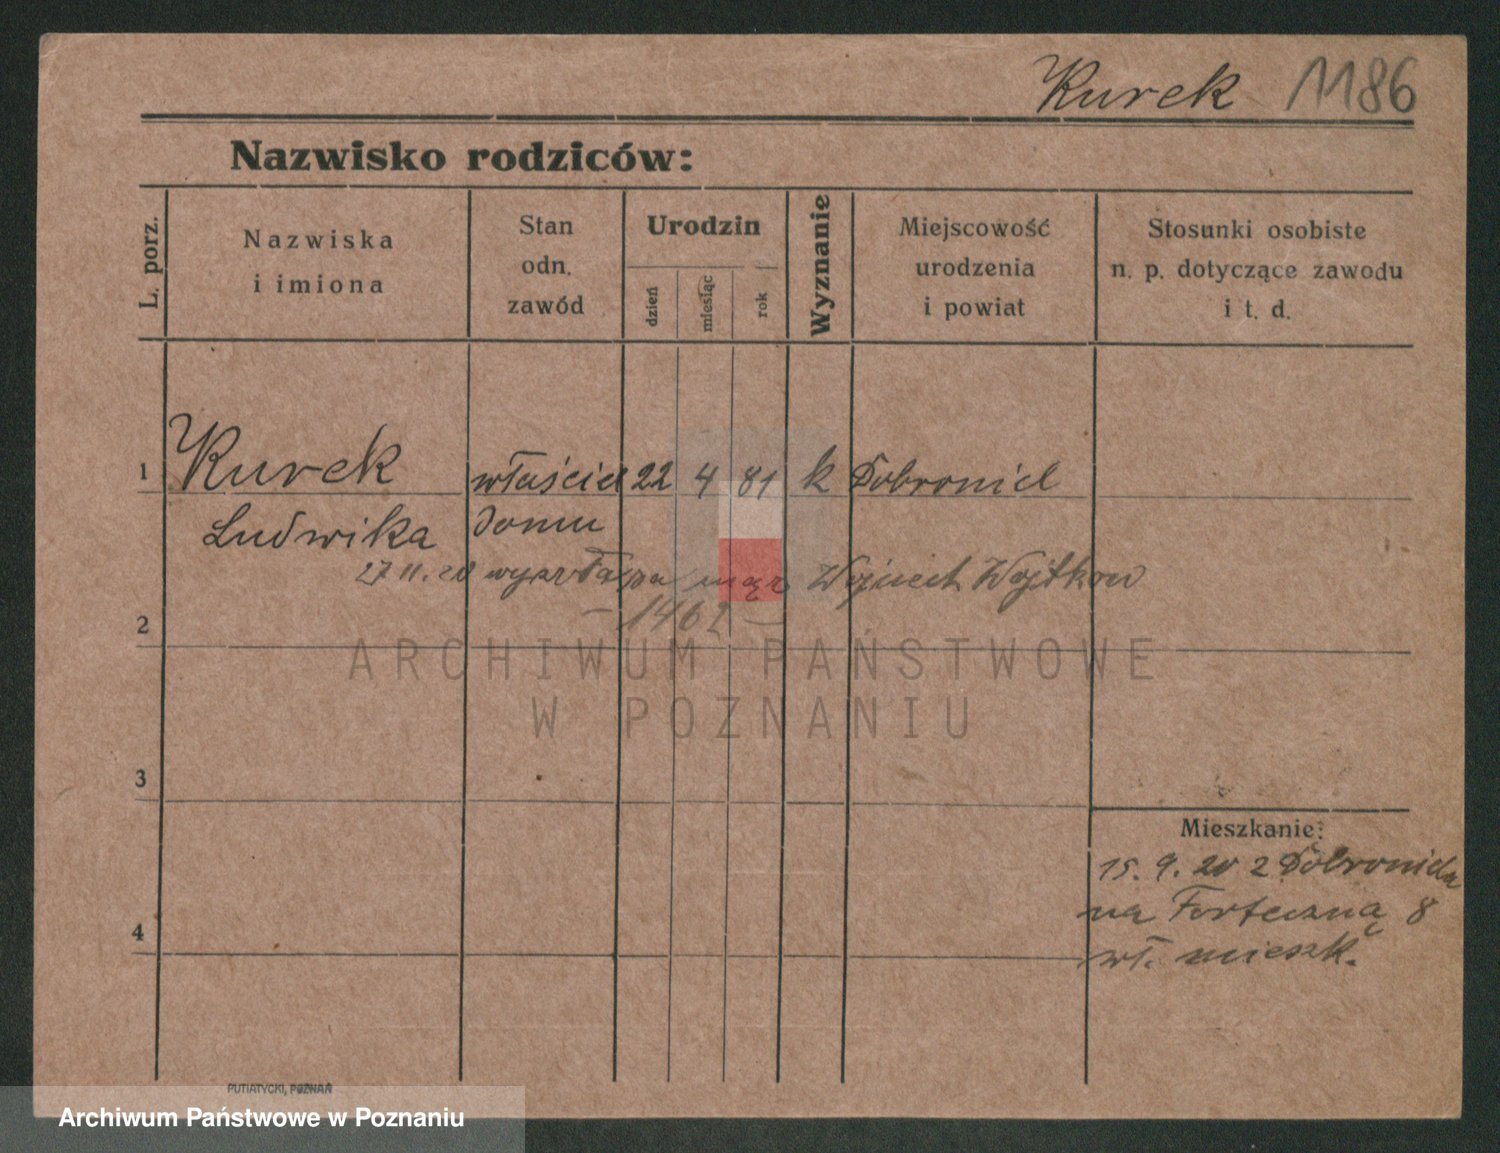 Kurek 1186
Nazwisko rodziców:
L. porz.
Nazwiska
i imiona
Stan
odn.
zawód
Urodzin
dzień
miesiąc
rok
Wyznanie
Miejscowość
urodzenia
i powiat
Stosunki osobiste
n. p. dotyczące zawodu
i t. d.
1 Kurek właściciel 22 4 81 k
Ludwika domu
27 11. 20 mąż Wojciech
1462
2
ARCHIWUM PAŃSTWOWE
W POZNANIU
3
Mieszkanie:
15. 9. 20 z
na Forteczną 8
4
wł. mieszk.
PUTIATYCKI, POZNAŃ
Archiwum Państwowe w Poznaniu